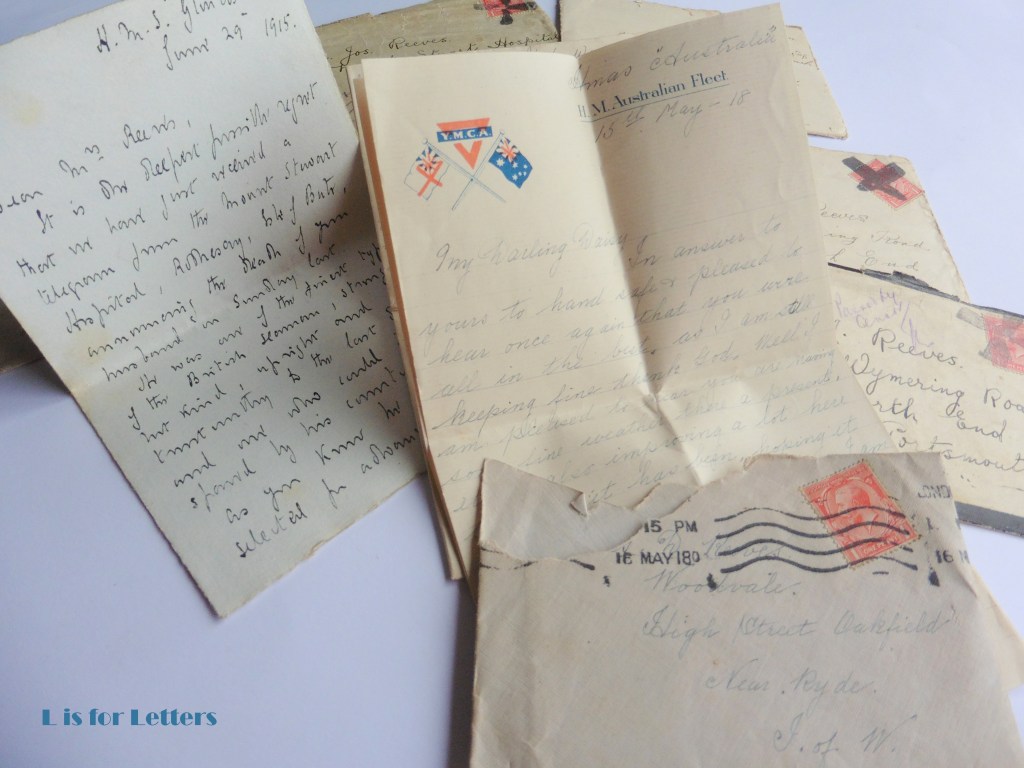 H.M.S.
June 29th 1915.
Dear Mrs Reeves,
It is the deepest possible regret
that we have just received a
telegram from the Mount Stewart
Hospital, Rothesay, Isle of Bute,
announcing the death of your
husband on Sunday last.
He was one of the finest types
of the British seaman, strong
but kind, upright and
trustworthy to the last
and one who could
spared by his
as you know he
selected for advance
Jos. Reeves
Hospital
"Australia"
H.M. Australian Fleet
15th May - 18
Y.M.C.A
My Darling Daisy, In answer to
yours to hand safe & pleased to
hear once again that you were
all in the best, as I am still
keeping fine thank God. Well I
am pleased to hear you are having
some fine weather there at present,
a lot here
Reeves
Road
End
Reeves.
Wymering Road
North End
Portsmouth
15 PM
16 MAY 18
LOND
16 M
Reeves
Woodvale.
High Street Oakfield
Near Ryde.
I. of W.
L is for Letters